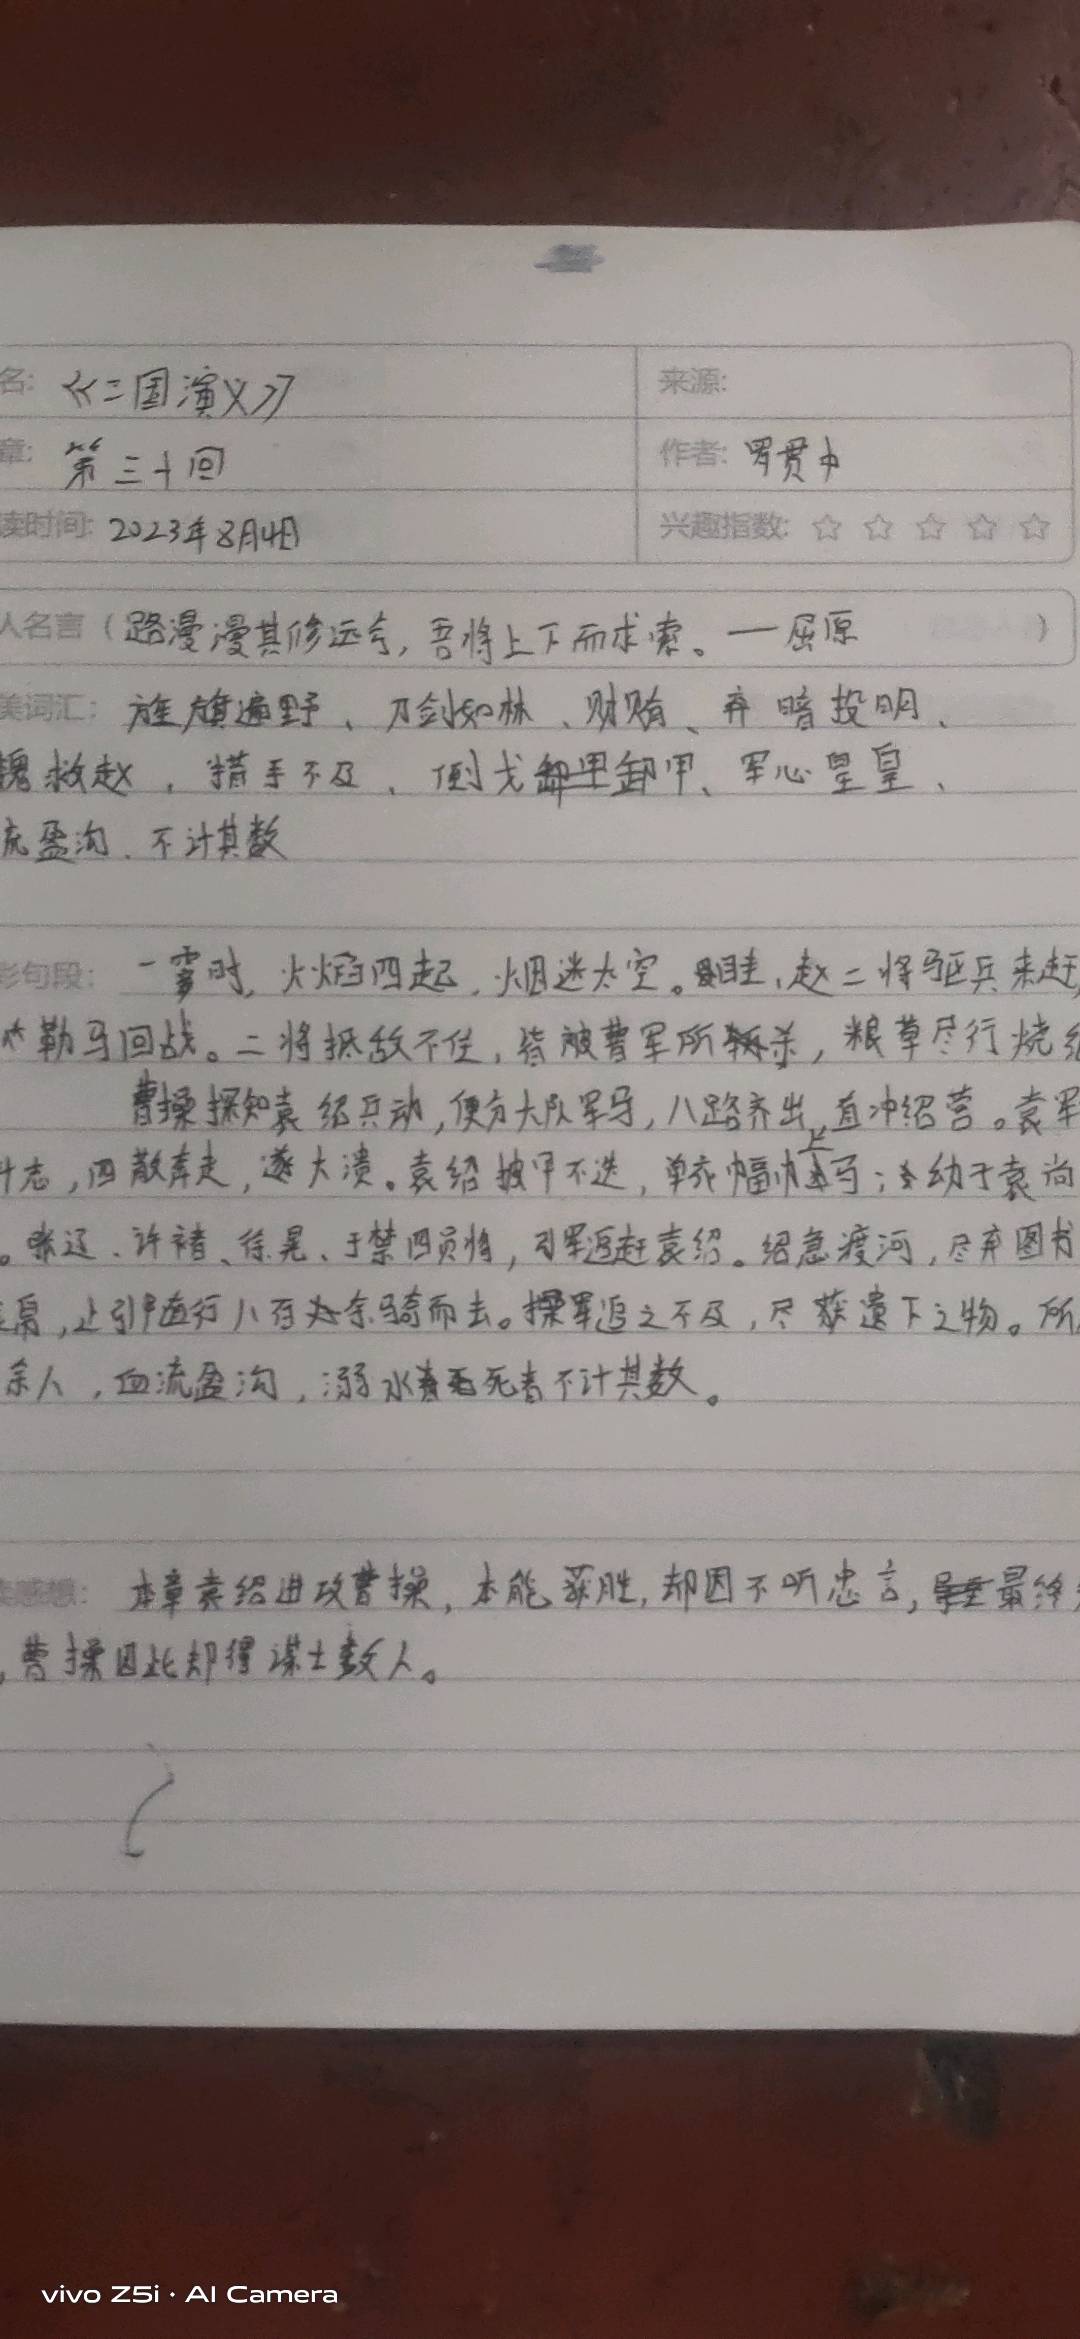 名: 《三国演义》 来源:
章: 第三十回 作者: 罗贯中
读时间: 2023年8月4日 兴趣指数: ☆ ☆ ☆ ☆ ☆
人名言 ( 路漫漫其修远兮, 吾将上下而求索。——屈原 )
美词汇: 旌旗遍野、刀剑如林、财贿、弃暗投明、
魏救赵, 措手不及、倒戈卸甲、军心皇皇、
流盈沟、不计其数
彩句段: 一霎时, 火焰四起, 烟迷太空。眭,赵二将驱兵来赶,
勒马回战。二将抵敌不住, 皆被曹军所杀, 粮草尽行烧
曹操探知袁绍兵动, 便分大队军马, 八路齐出, 直冲绍营。袁军
斗志, 四散奔走, 遂大溃。袁绍披甲不迭, 单衣幅巾上马; 幼子袁尚
。张辽、许褚、徐晃、于禁四员将, 引军追赶袁绍。绍急渡河, 尽弃图书
帛, 止引随行八百余骑而去。操军追之不及, 尽获遗下之物。所
余人, 血流盈沟, 溺水死者不计其数。
感想: 本章袁绍进攻曹操, 本能获胜, 却因不听忠言, 最终
, 曹操因此却得谋士数人。
vivo Z5i · AI Camera